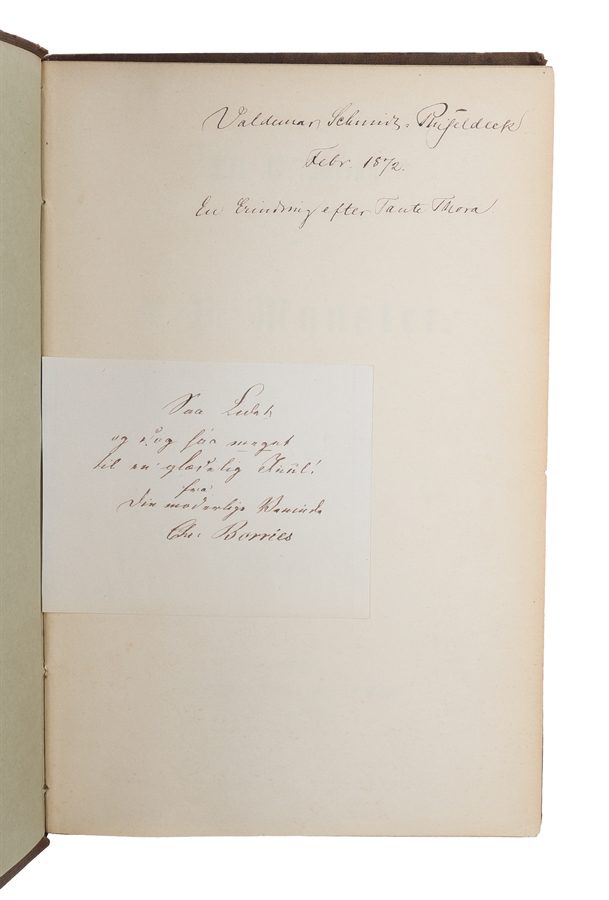 Valdemar Schmidt-Phiseldeck
Febr. 1872.
En Erindring efter Tante Thora
Saa Lidet
og dog saa meget
til en glædelig Juul!
fra
Din moderlige Veninde
Chr: Borries